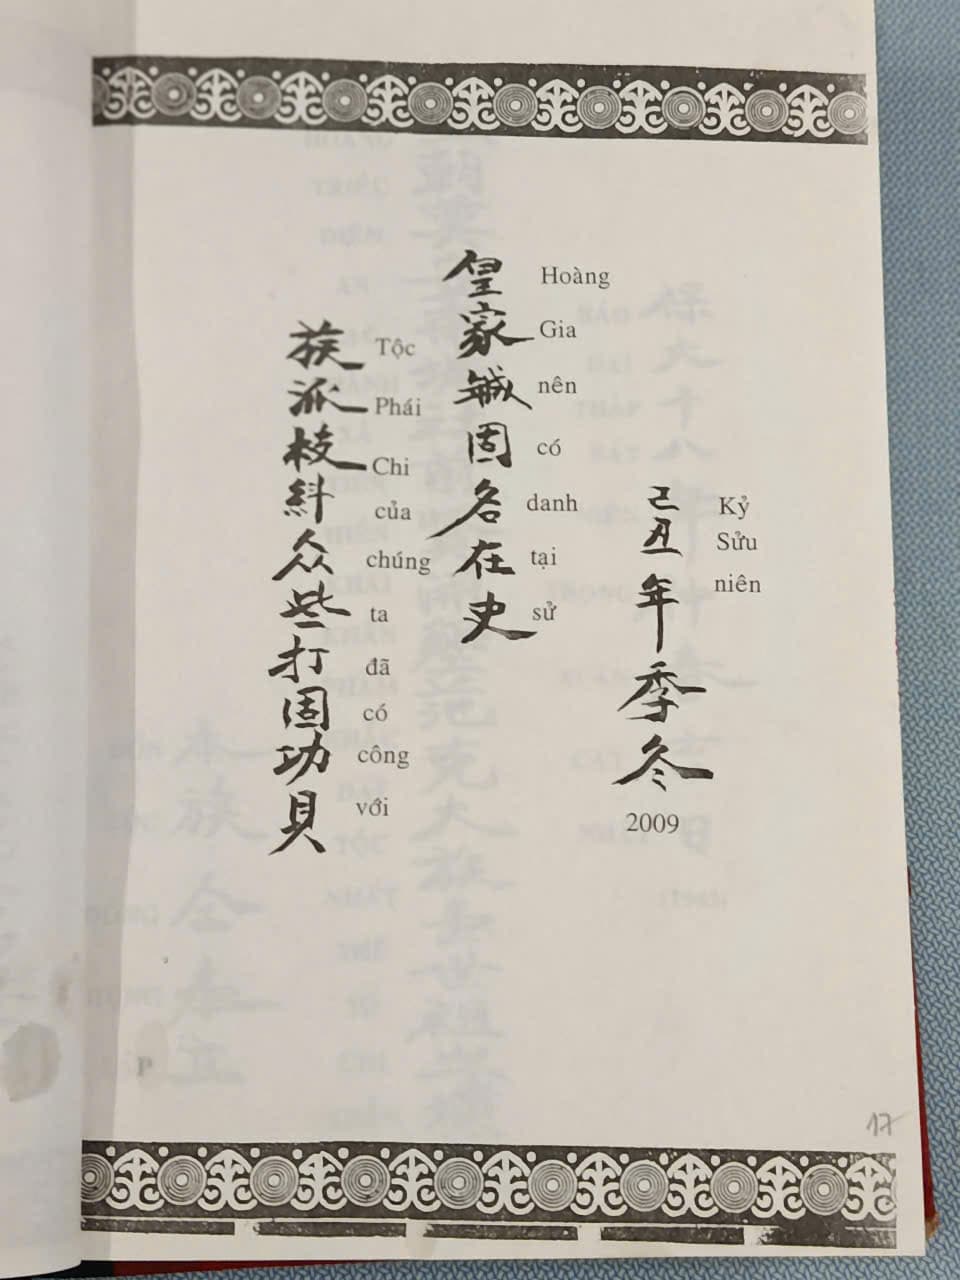 族派枝紏众些打固功貝
Tộc Phái Chi của chúng ta đã có công với
皇家𢧚固名在史
Hoàng Gia nên có danh tại sử
己丑年季冬
Kỷ Sửu niên
2009
17